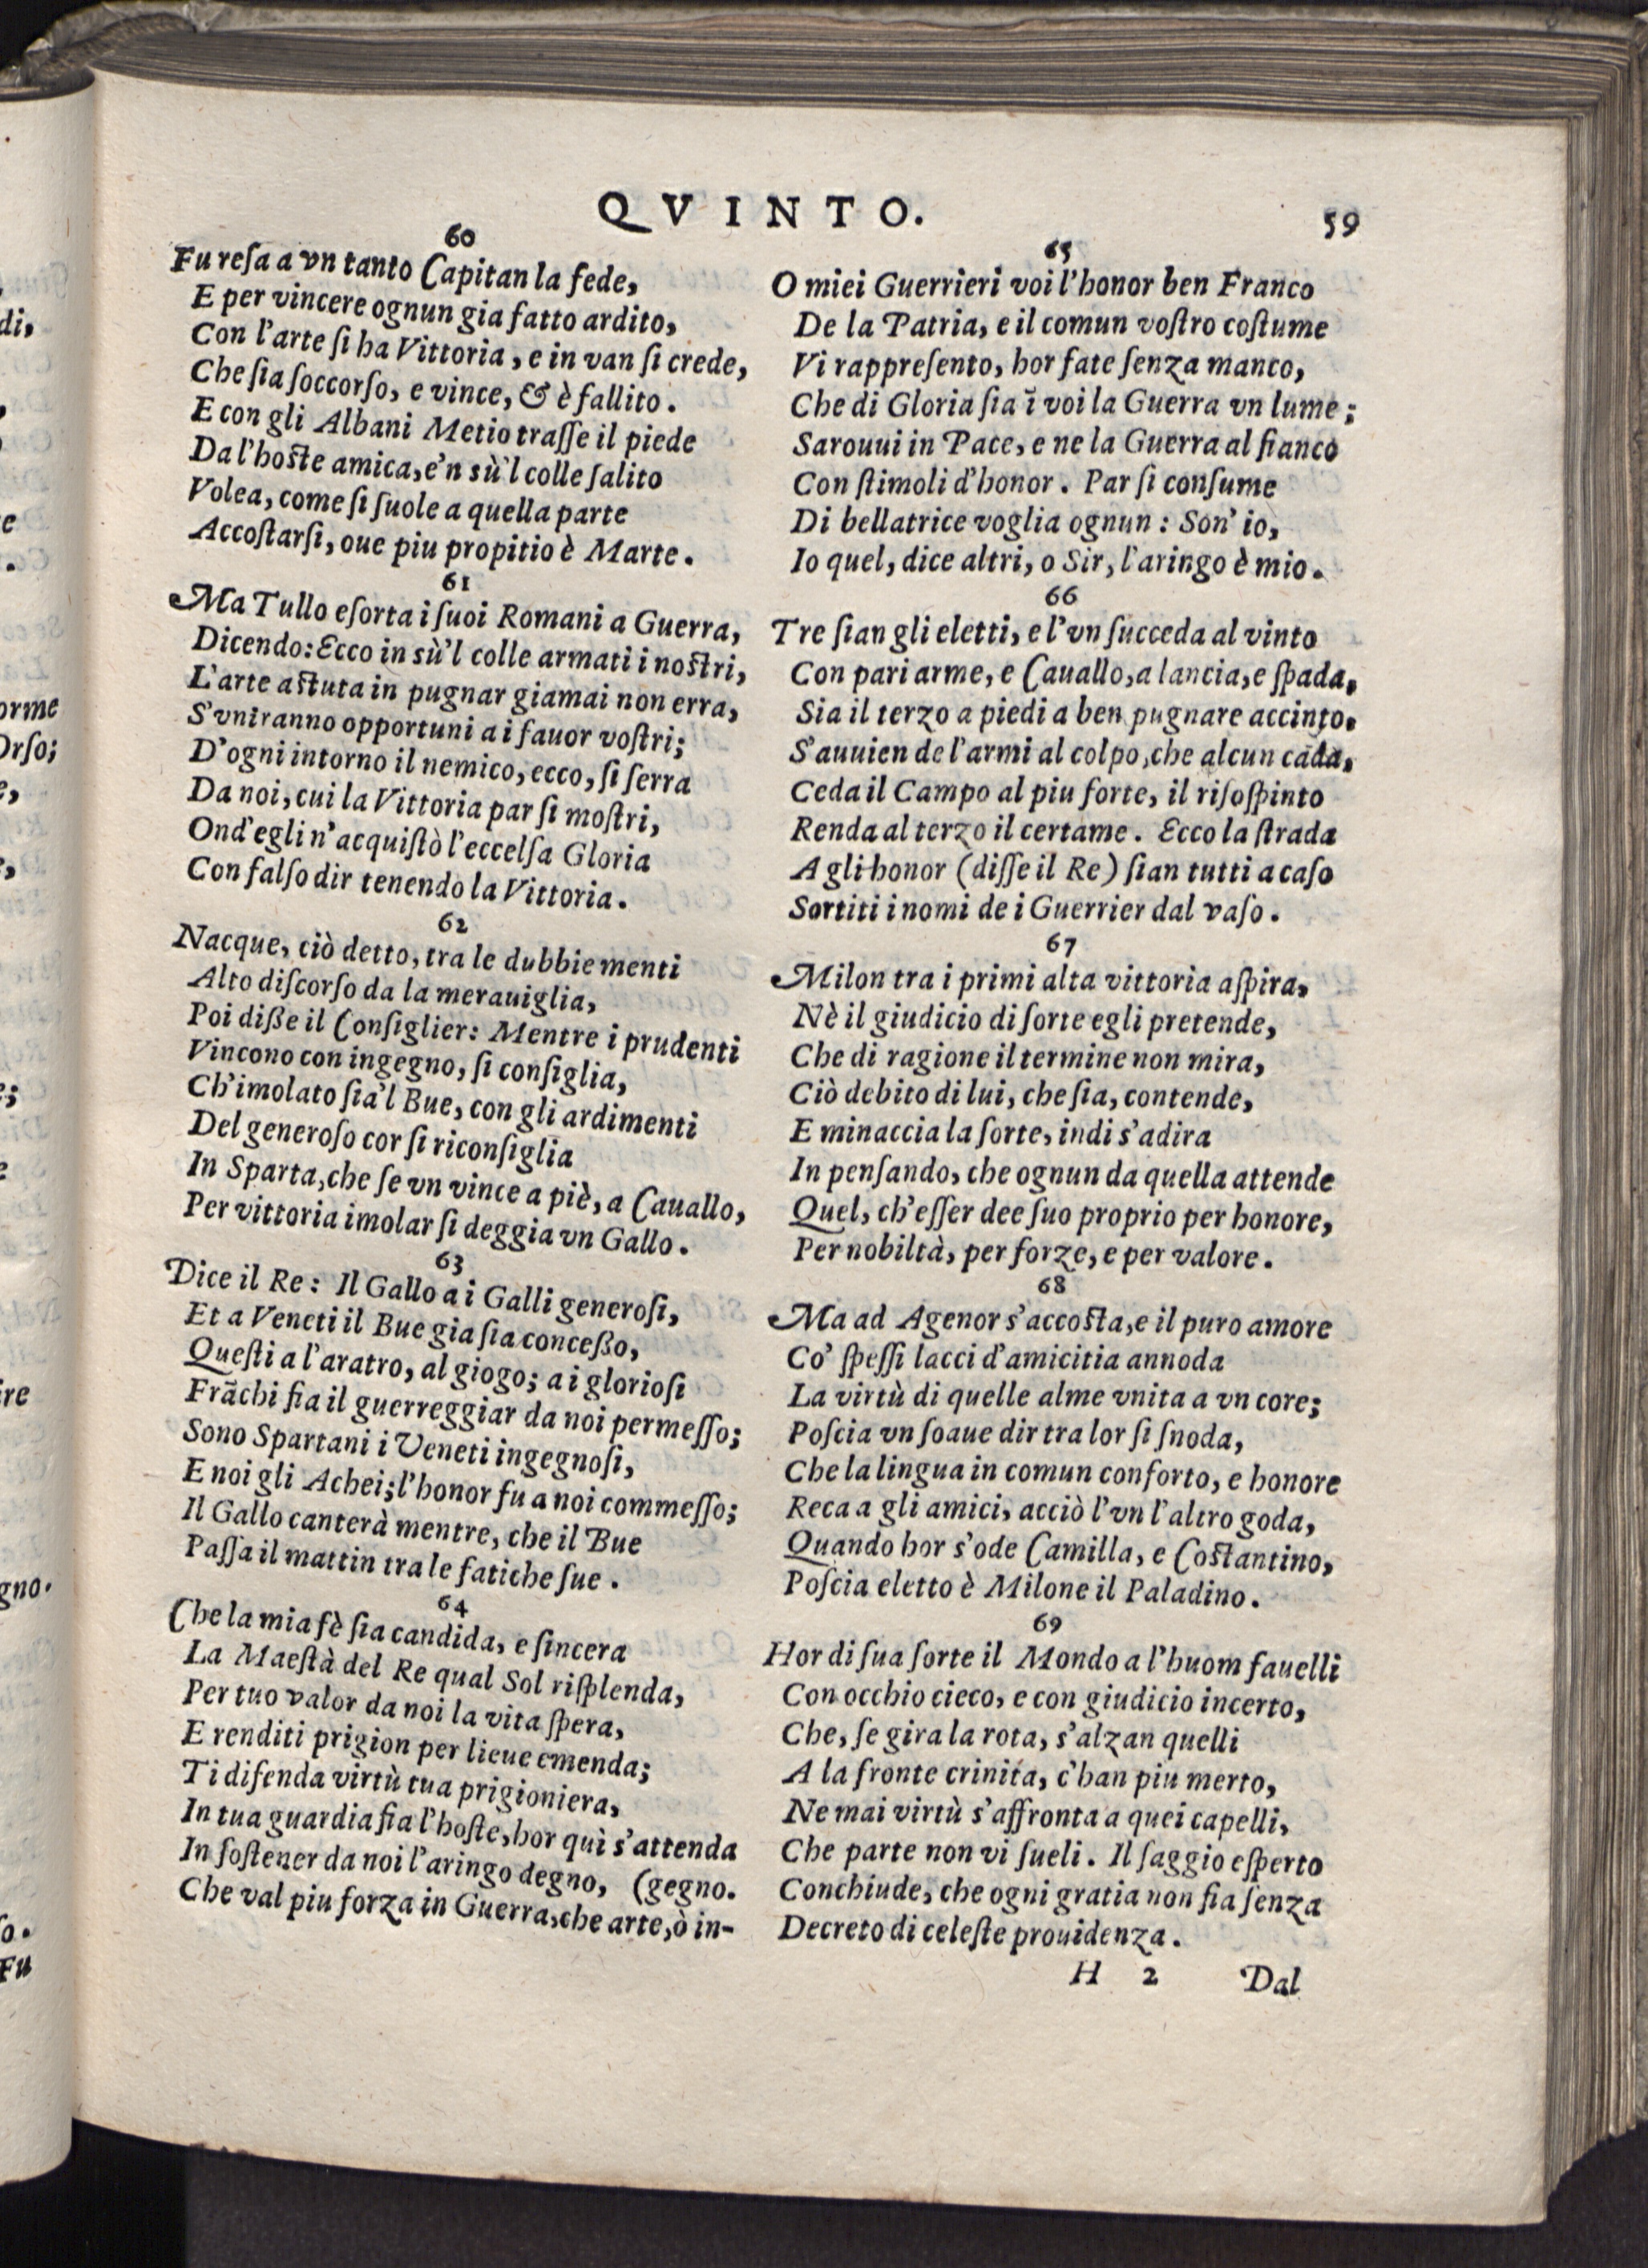 QVINTO.
59
60
Fu reſa a vn tanto Capitan la fede,
E per vincere ognun gia fatto ardito,
Con l'arte ſi ha Vittoria, e in van ſi crede,
Che ſia ſoccorſo, e vince, & è fallito.
E con gli Albani Metio traſſe il piede
Da l'hoſte amica, e'n sù'l colle ſalito
Volea, come ſi ſuole a quella parte
Accoſtarſi, oue piu propitio è Marte.
61
Ma Tullo eſorta i ſuoi Romani a Guerra,
Dicendo: Ecco in sù'l colle armati i noſtri,
L'arte aſtuta in pugnar giamai non erra,
S'vniranno opportuni a i fauor voſtri;
D'ogni intorno il nemico, ecco, ſi ſerra
Da noi, cui la Vittoria par ſi moſtri,
Ond'egli n'acquiſtò l'eccelſa Gloria
Con falſo dir tenendo la Vittoria.
62
Nacque, ciò detto, tra le dubbie menti
Alto diſcorſo da la merauiglia,
Poi diße il Conſiglier: Mentre i prudenti
Vincono con ingegno, ſi conſiglia,
Ch'imolato ſia'l Bue, con gli ardimenti
Del generoſo cor ſi riconſiglia
In Sparta, che ſe vn vince a piè, a Cauallo,
Per vittoria imolar ſi deggia vn Gallo.
63
Dice il Re: Il Gallo a i Galli generoſi,
Et a Veneti il Bue gia ſia conceßo,
Queſti a l'aratro, al giogo; a i glorioſi
Frãchi fia il guerreggiar da noi permeſſo;
Sono Spartani i Veneti ingegnoſi,
E noi gli Achei; l'honor fu a noi commeſſo;
Il Gallo canterà mentre, che il Bue
Paſſa il mattin tra le fatiche ſue.
64
Che la mia fè ſia candida, e ſincera
La Maeſtà del Re qual Sol riſplenda,
Per tuo valor da noi la vita ſpera,
E renditi prigion per lieue emenda;
Ti difenda virtù tua prigioniera,
In tua guardia fia l'hoſte, hor quì s'attenda
In ſoſtener da noi l'aringo degno, (gegno.
Che val piu forza in Guerra, che arte, ò in-
65
O miei Guerrieri voi l'honor ben Franco
De la Patria, e il comun voſtro coſtume
Vi rappreſento, hor fate ſenza manco,
Che di Gloria ſia ĩ voi la Guerra vn lume;
Sarouui in Pace, e ne la Guerra al fianco
Con ſtimoli d'honor. Par ſi conſume
Di bellatrice voglia ognun: Son' io,
Io quel, dice altri, o Sir, l'aringo è mio.
66
Tre ſian gli eletti, e l'vn ſucceda al vinto
Con pari arme, e Cauallo, a lancia, e ſpada,
Sia il terzo a piedi a ben pugnare accinto.
S'auuien de l'armi al colpo, che alcun cada,
Ceda il Campo al piu forte, il riſoſpinto
Renda al terzo il certame. Ecco la ſtrada
A gli honor (diſſe il Re) ſian tutti a caſo
Sortiti i nomi de i Guerrier dal vaſo.
67
Milon tra i primi alta vittoria aſpira,
Nè il giudicio di ſorte egli pretende,
Che di ragione il termine non mira,
Ciò debito di lui, che ſia, contende,
E minaccia la ſorte, indi s'adira
In penſando, che ognun da quella attende
Quel, ch'eſſer dee ſuo proprio per honore,
Per nobiltà, per forze, e per valore.
68
Ma ad Agenor s'accoſta, e il puro amore
Co' ſpeſſi lacci d'amicitia annoda
La virtù di quelle alme vnita a vn core;
Poſcia vn ſoaue dir tra lor ſi ſnoda,
Che la lingua in comun conforto, e honore
Reca a gli amici, acciò l'vn l'altro goda,
Quando hor s'ode Camilla, e Coſtantino,
Poſcia eletto è Milone il Paladino.
69
Hor di ſua ſorte il Mondo a l'huom fauelli
Con occhio cieco, e con giudicio incerto,
Che, ſe gira la rota, s'alzan quelli
A la fronte crinita, c'han piu merto,
Ne mai virtù s'affronta a quei capelli,
Che parte non vi ſueli. Il ſaggio eſperto
Conchiude, che ogni gratia non fia ſenza
Decreto di celeſte prouidenza.
H 2 Dal
di,
e
.
orme
Orſo;
e,
e;
e
ire
gno.
ſo.
Fu